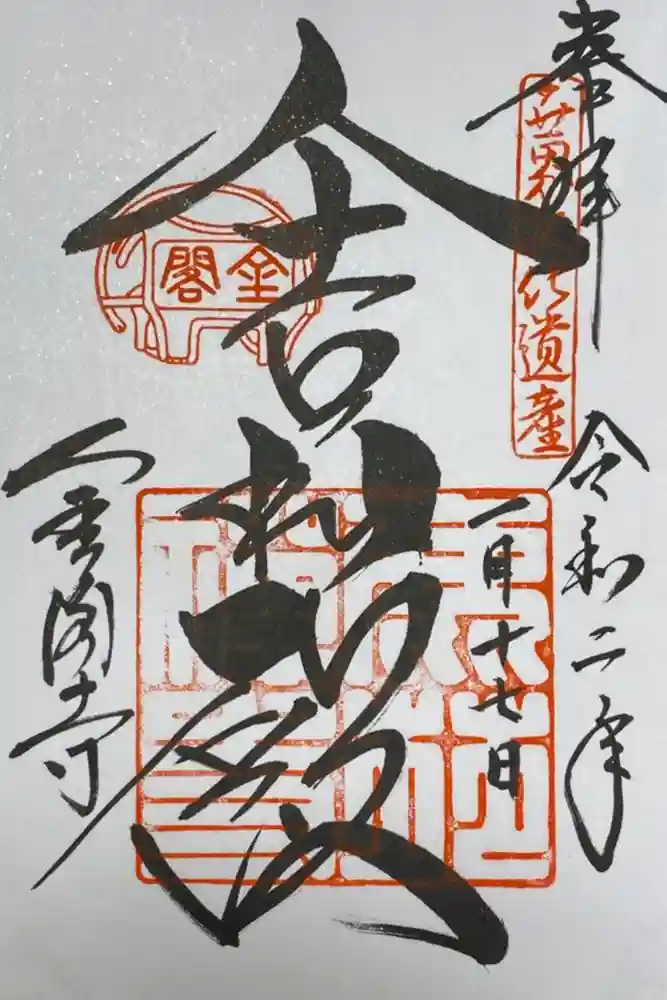 奉拝
世界文化遺産
令和二年
一月十七日
舍利殿
金閣
金閣寺